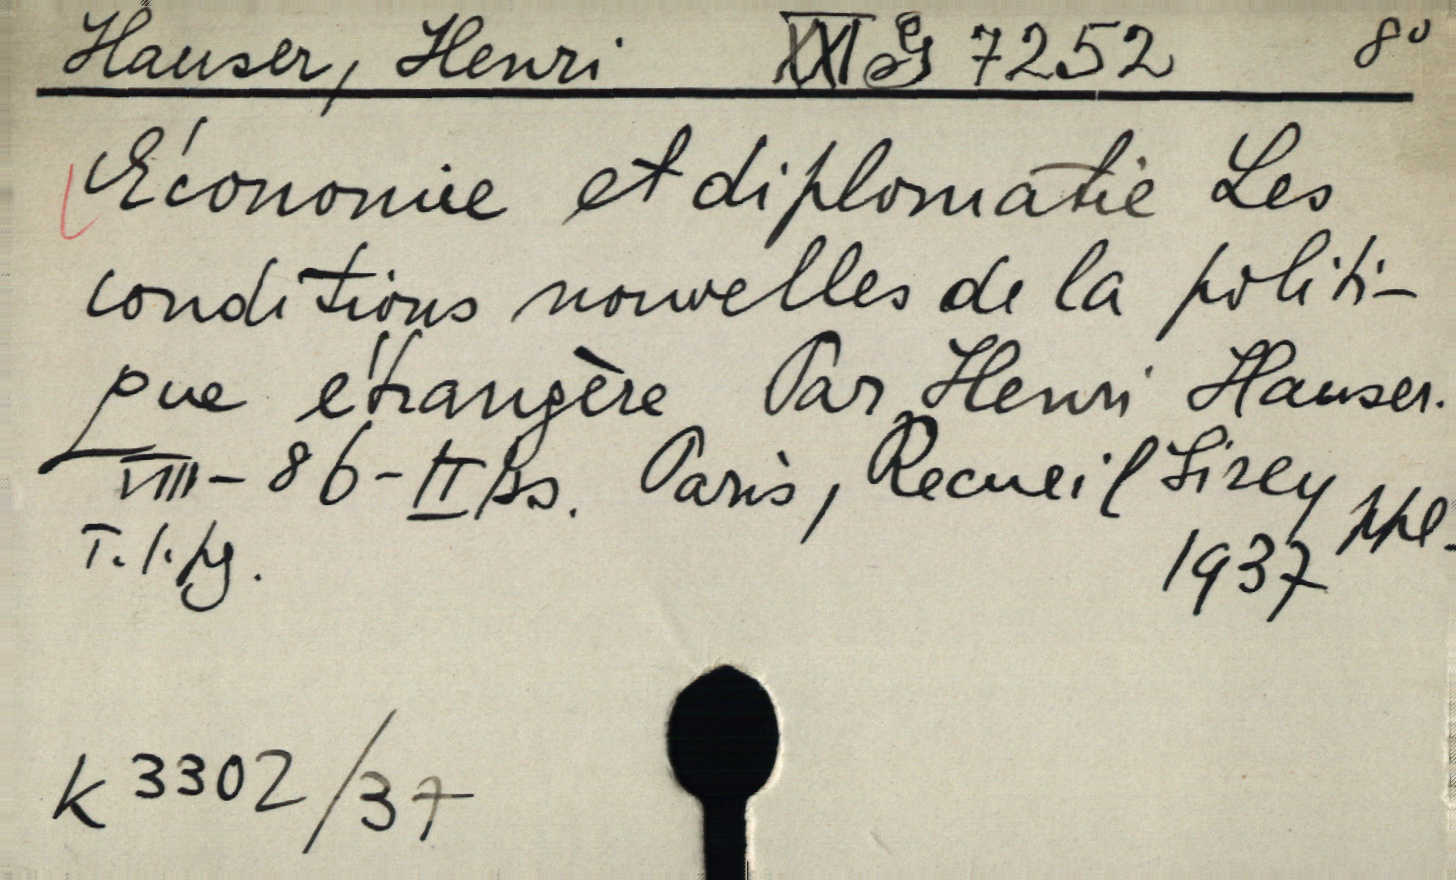 Hauser, Henri XXI G 7252 8°
Économie et diplomatie Les
conditions nouvelles de la politi-
que étrangère Par Henri Hauser.
VIII-86-II ss. Paris, Recueil Sirey
T. l. jg. 1937 ppl.
K 3302/37